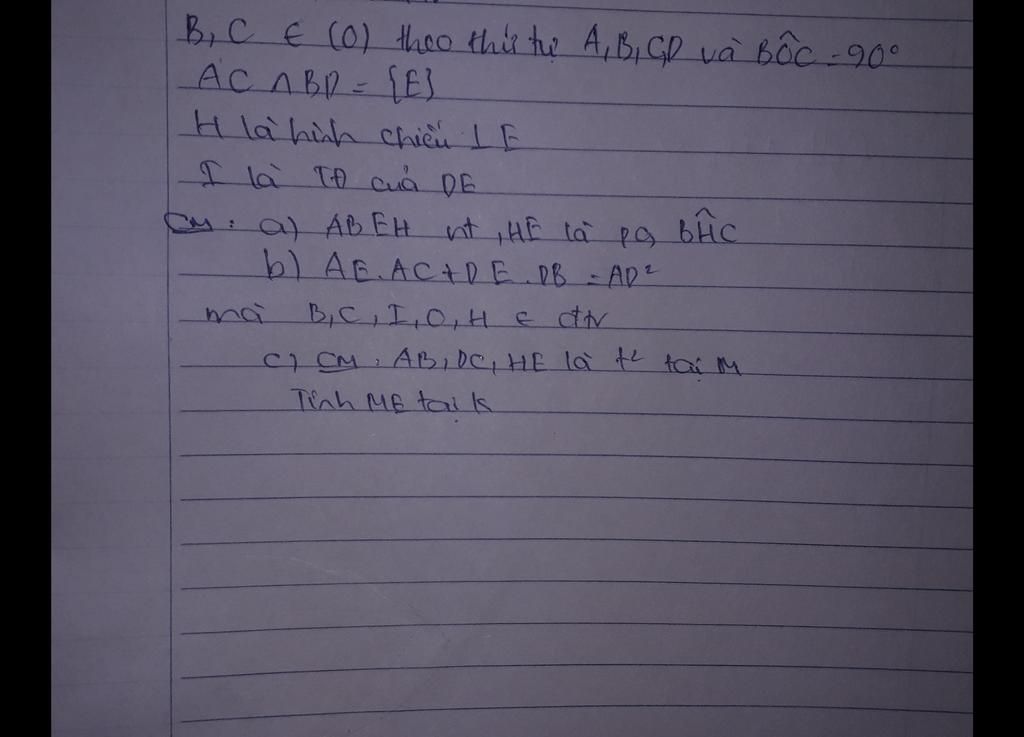 B, C ∈ (O) theo thứ tự A, B, C, D và BÔC = 90°
AC ∩ BD = {E}
H là hình chiếu ⊥ E
I là TĐ của DE
CM: a) ABEH nt, HE là pg BĤC
b) AE.AC + DE.DB = AD²
mà B, C, I, O, H ∈ đtr
c) CM: AB, DC, HE là t² tại M
Tính ME tại K